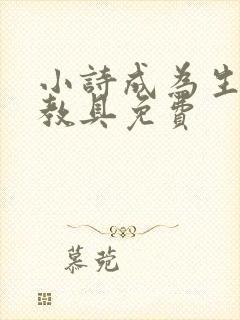 小詩成為生
教具免費
慕菀